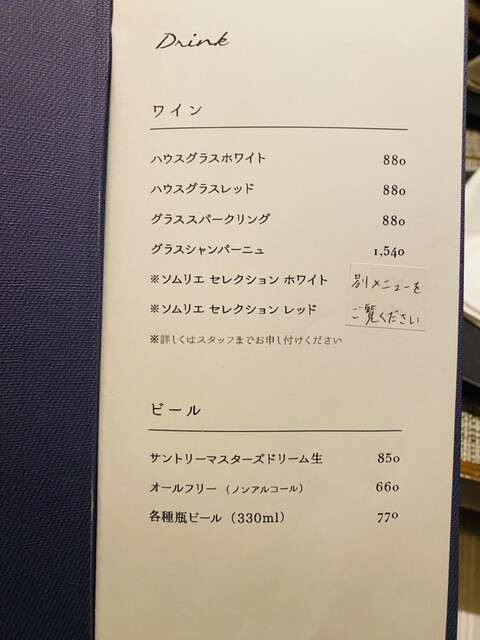 Drink
ワイン
ハウスグラスホワイト 880
ハウスグラスレッド 880
グラススパークリング 880
グラスシャンパーニュ 1,540
※ソムリエ セレクション ホワイト
※ソムリエ セレクション レッド
別メニューを
ご覧ください
※詳しくはスタッフまでお申し付けください
ビール
サントリーマスターズドリーム生 850
オールフリー（ノンアルコール） 660
各種瓶ビール（330ml） 770